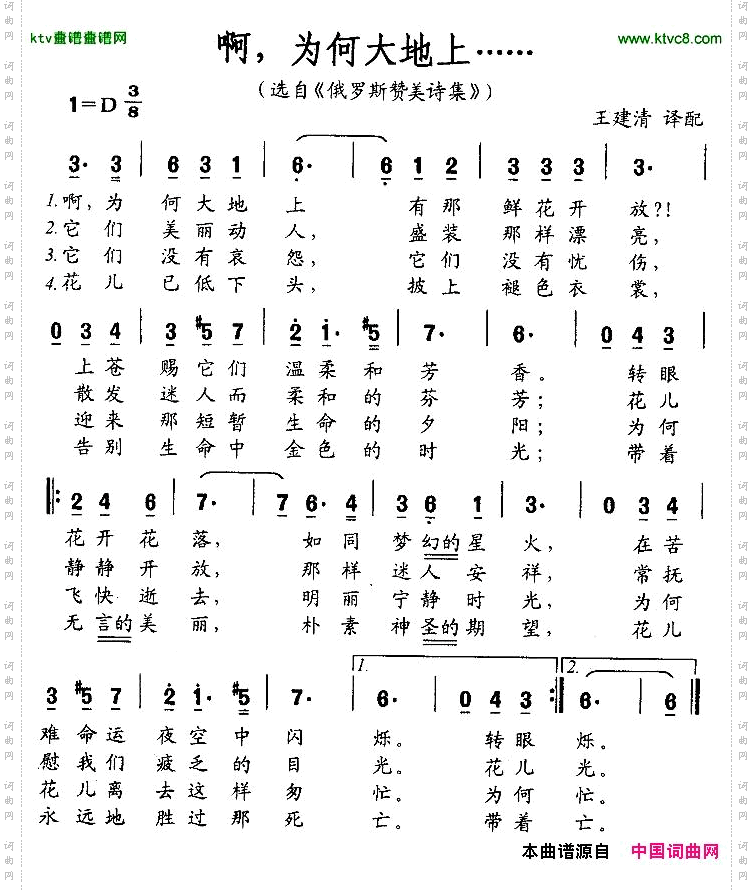 ktv 曲谱曲谱网
www.ktvc8.com
啊，为何大地上……
（选自《俄罗斯赞美诗集》）
1=D 3/8
王建清 译配
3· 3 | 6 3 1 | 6· | 6 1 2 | 3 3 3 | 3· |
1.啊，为 何大地 上 有那 鲜花开 放?!
2.它们 美丽动 人， 盛装 那样漂 亮，
3.它们 没有哀 怨， 它们 没有忧 伤，
4.花儿 已低下 头， 披上 褪色衣 裳，
0 3 4 | 3 #5 7 | 2 1· #5 | 7· | 6· | 0 4 3 |
上苍 赐它们 温柔和 芳 香。 转眼
散发 迷人而 柔和的 芬 芳； 花儿
迎来 那短暂 生命的 夕 阳； 为何
告别 生命中 金色的 时 光； 带着
‖: 2 4 6 | 7· | 7 6· 4 | 3 6 1 | 3· | 0 3 4 |
花开花 落， 如同 梦幻的星 火， 在苦
静静开 放， 那样 迷人安 祥， 常抚
飞快逝 去， 明丽 宁静时 光， 为何
无言的美 丽， 朴素 神圣的期 望， 花儿
1. 2.
3 #5 7 | 2 1· #5 | 7· | 6· | 0 4 3 :‖ 6· | 6 ‖
难命运 夜空中 闪 烁。 转眼 烁。
慰我们 疲乏的 目 光。 花儿 光。
花儿离 去这样 匆 忙。 为何 忙。
永远地 胜过那 死 亡。 带着 亡。
本曲谱源自 中国词曲网